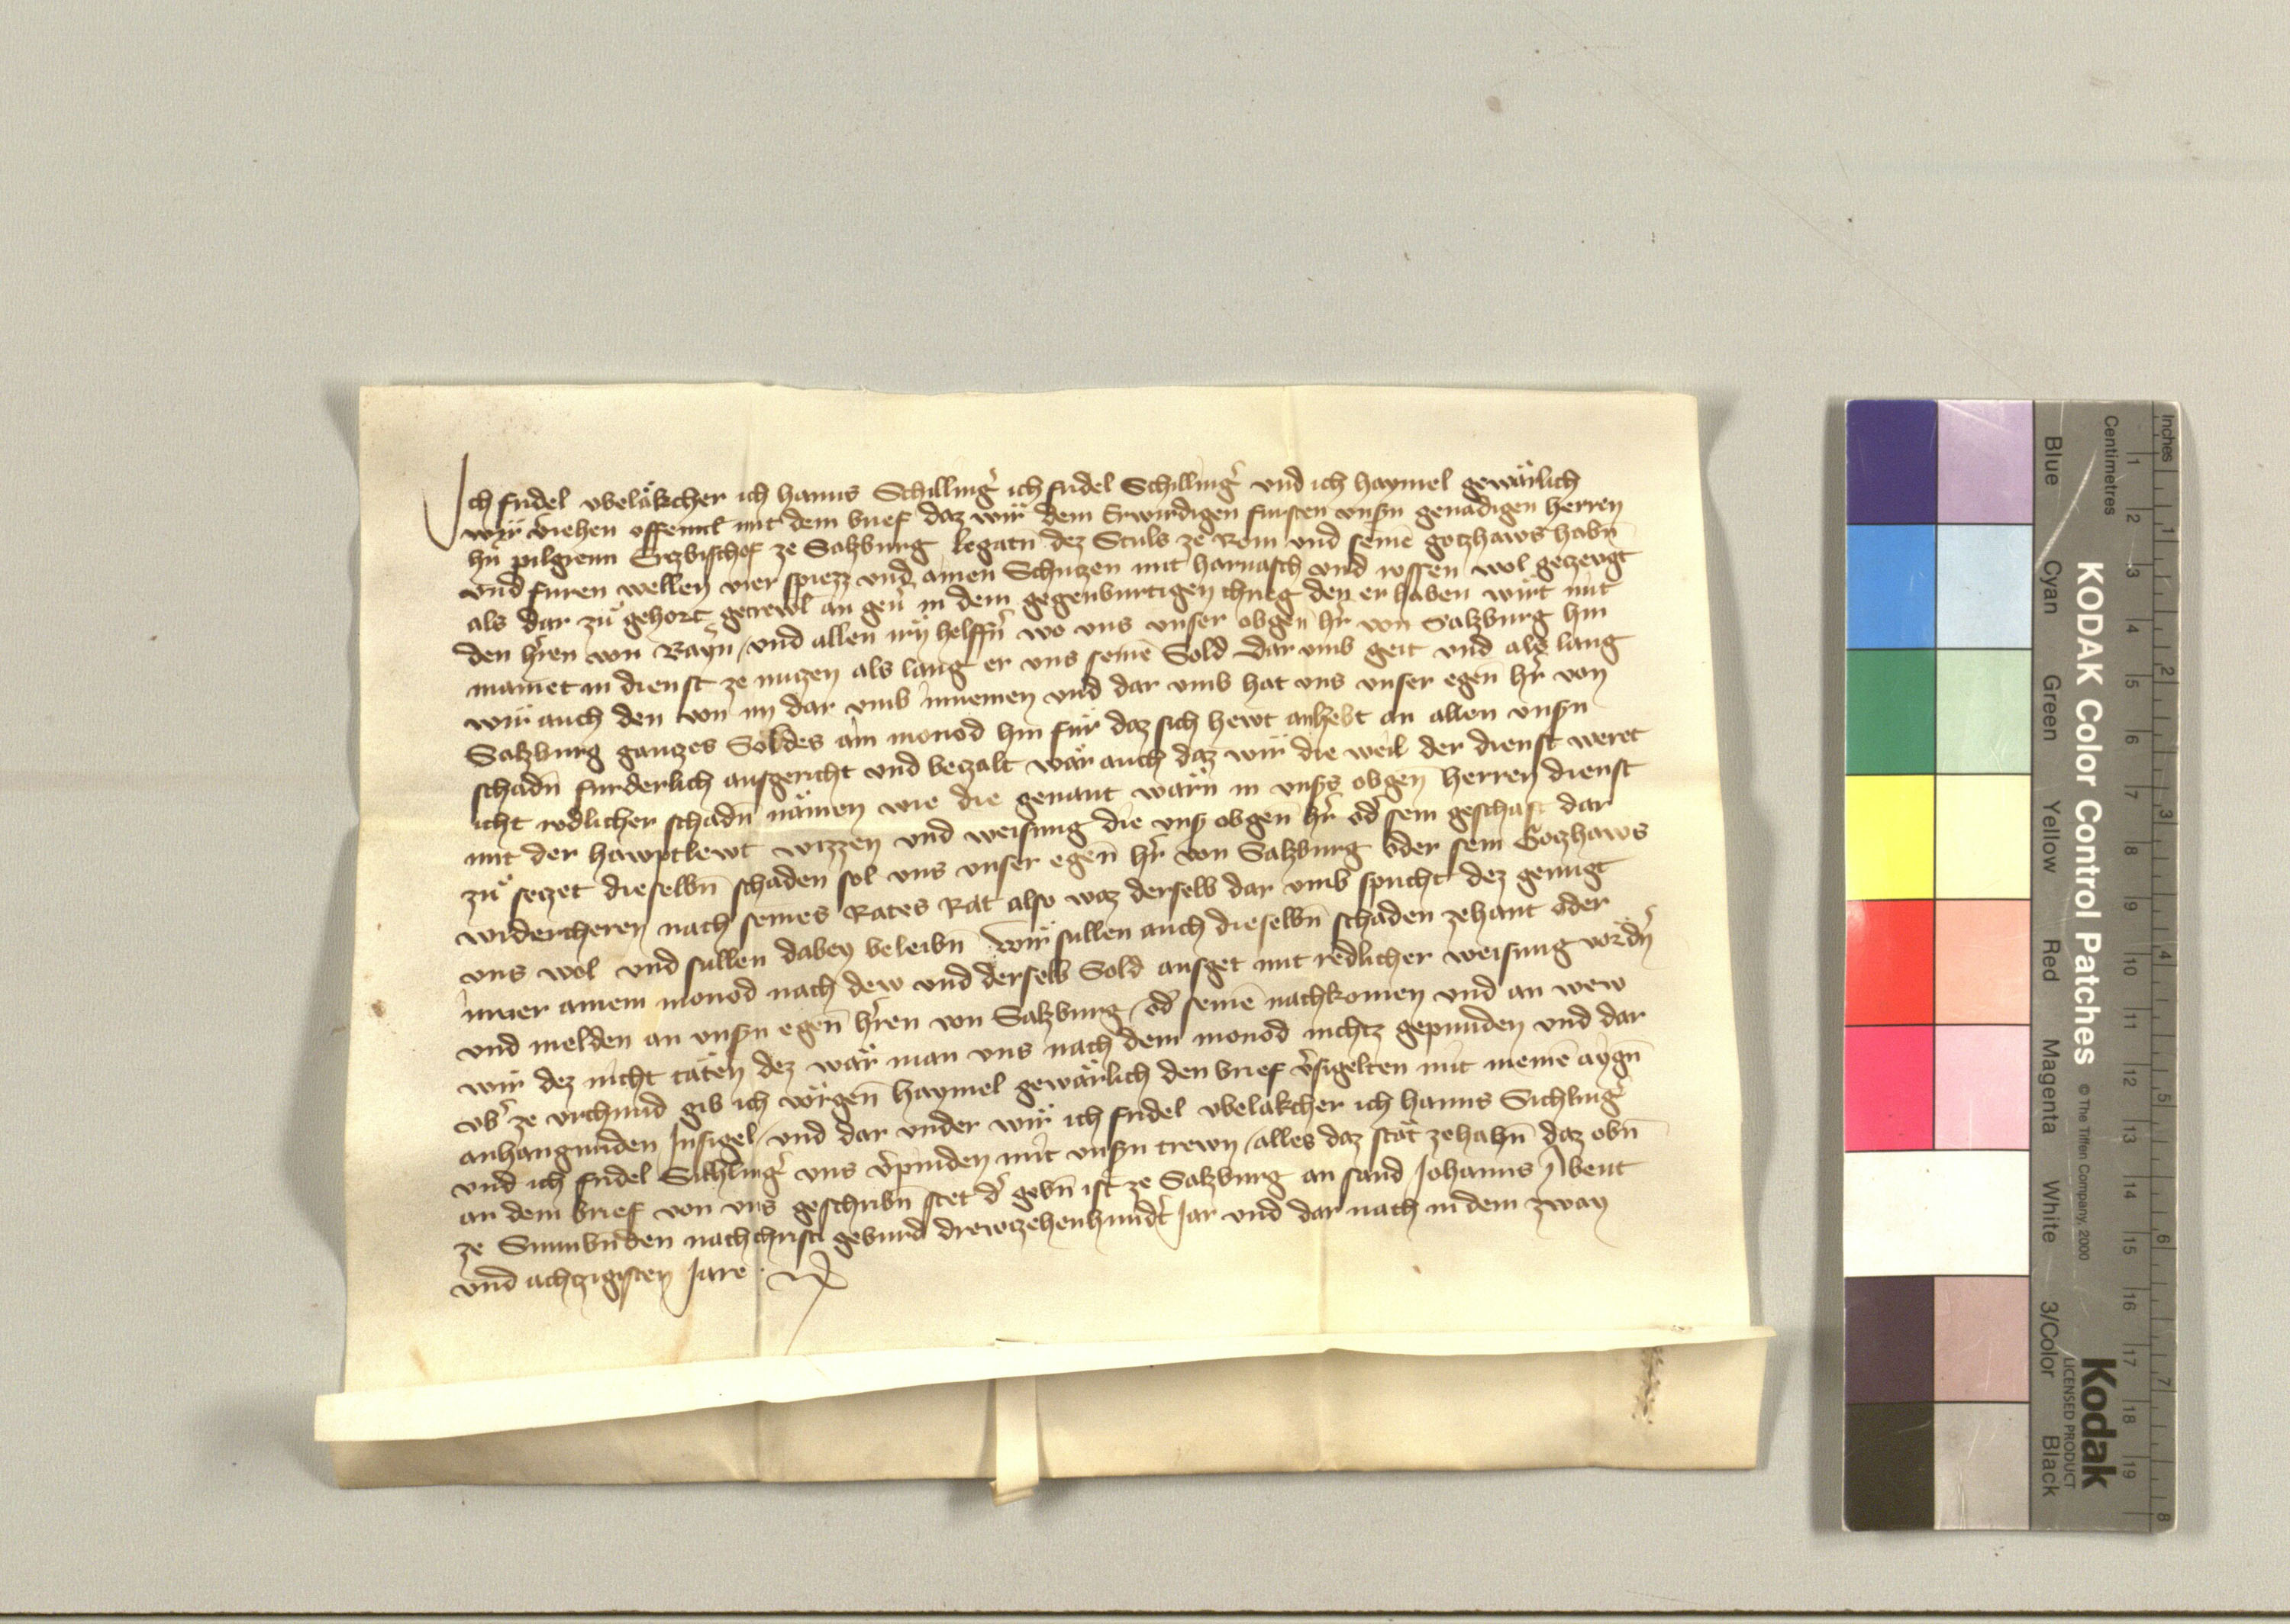 Ich fridel vbeläkcher ich hanns Schilling̃ ich fridel Schilling̃ vnd ich haymel gewärlich
wir viehen offennl mit dem brief daz wir dem Erwirdigen fursten vnsn̄ genädigen herren
hn̄ pilgreim Erzbischof ze Salzburg legatn̄ dez Stuls ze Rom vnd seinē gotzhaws habn̄
vnd furen wellen vier spiezz vnd ainen Schutzen mit harnasch vnd rossen wol getzeugt
als dar zů gehort getrewl an gen̄ in dem gegenburtigen chrieg den er haben wirt mit
den hr̄en von Bayrn̄ / vnd allen irn̄ helffn̄ wo vns vnser obgen̄ hr̄ von Salzburg hin
mainet in dienst ze nutzen als lang er vns seinē Sold dar vmb geit vnd als lang
wir auch den von im dar vmb innemen vnd dar vmb hat vns vnser egen̄ hr̄ von
Salzburg gantzes Soldes ain monod hin für daz sich hewt anhebt an allen vnsn̄
schadn̄ furderlich ausgericht vnd betzalt wär auch daz wir die weil der dienst weret
icht redlicher schadn̄ nämen wie die genant wärn̄ in vnss obgen̄ herren dienst
mit der hawptlewt wizzen vnd weisung die vns obgen̄ hr̄ od̄ sein geschäft dar
zů setzet dieselbn̄ schaden sol vns vnser egen̄ hr̄ von Salzburg oder sein Gotzhaws
widercheren nach seines Rates Rat also waz derselb dar vmb spricht dez genugt
vns wol vnd sullen dabey beleibn̄ Wir sullen auch dieselbn̄ schaden zehant oder
inner ainem monod nach dew vnd derselb Sold ausget mit redlicher weisung vordn̄
vnd melden an vnsn̄ egen̄ hr̄en von Salzburg / od̄ seinē nachkomen vnd an wew
wir dez nicht täten dez wär man vns nach dem monod nichtz gepunden vnd dar
vb̄ ze vrchund gib ich vorgen̄ haymel gewärlich den brief v̄sigelten mit meinē aygn̄
anhangunden Insigel / vnd dar vnder wir ich fridel vbeläkcher ich hanns Sichling̃
vnd ich fridel Sichling̃ vns v̄pinden mit vnsn̄ trewn / alles daz stät zehabn̄ daz obn̄
an dem brief von vns geschribn̄ stet d̄ gebn̄ ist ze Salzburg an sand Johanns Abent
ze Sunnbenden nach christ gebürd drewtzehenhundt Jar vnd dar nach in dem zway
vnd achtzigisten Jare
Inches
Centimetres
1 2 3 4 5 6 7 8 9 10 11 12 13 14 15 16 17 18 19
1 2 3 4 5 6 7 8
KODAK Color Control Patches © The Tiffen Company, 2000
Kodak
LICENSED PRODUCT
Blue Cyan Green Yellow Red Magenta White 3/Color Black